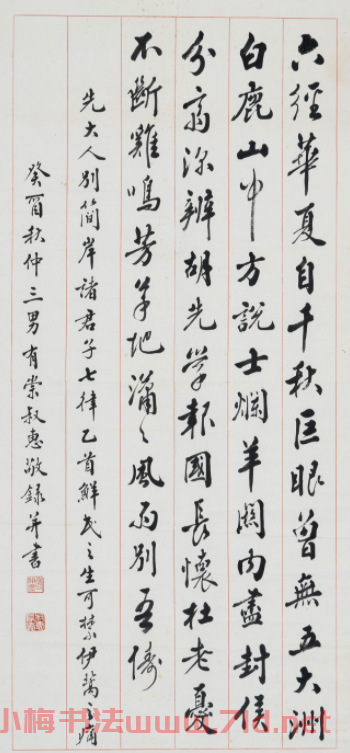 六經華夏自千秋巨眼曾無五大洲
白鹿山中方說士爛羊關內盡封侯
分齋深辨胡先學報國長懷杜老憂
不斷雞鳴芳草地瀟々風雨別吾儔
先大人別簡岸諸君子七律乙首鮮民之生可禁伊蒿之痛
癸酉秋仲三男有棠叔惠敬錄并書
小梅书法